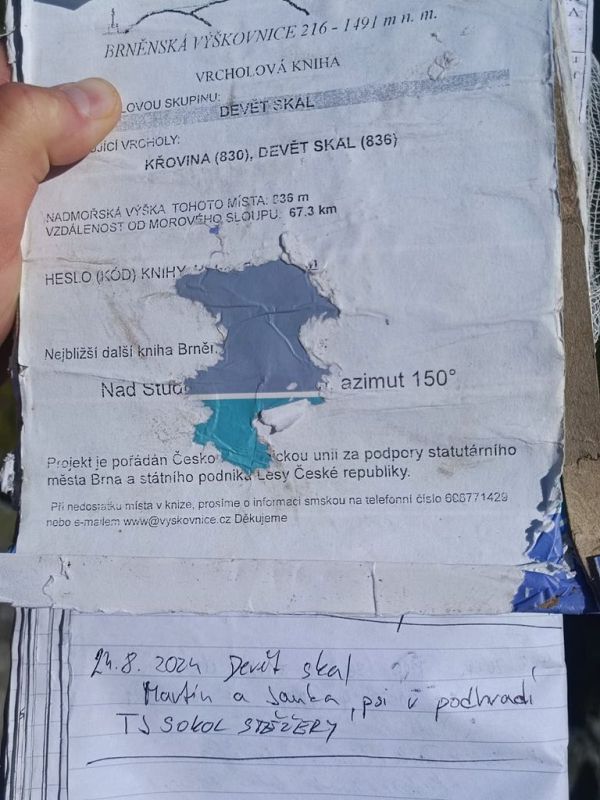 BRNĚNSKÁ VÝŠKOVNICE 216 - 1491 m n. m.
VRCHOLOVÁ KNIHA
LOVOU SKUPINU:
DEVĚT SKAL
JÍCÍ VRCHOLY:
KŘOVINA (830), DEVĚT SKAL (836)
NADMOŘSKÁ VÝŠKA TOHOTO MÍSTA: 836 m
VZDÁLENOST OD MOROVÉHO SLOUPU: 67.3 km
HESLO (KÓD) KNIHY
Nejbližší další kniha Brněn
Nad Stud azimut 150°
Projekt je pořádán Česko ickou unií za podpory statutárního
města Brna a státního podniku Lesy České republiky.
Při nedostatku místa v knize, prosíme o informaci smskou na telefonní číslo 606771429
nebo e-mailem www@vyskovnice.cz Děkujeme
24.8. 2024 Devět skal
Martin a Janka, psi v podhradí
TJ SOKOL STĚŽERY